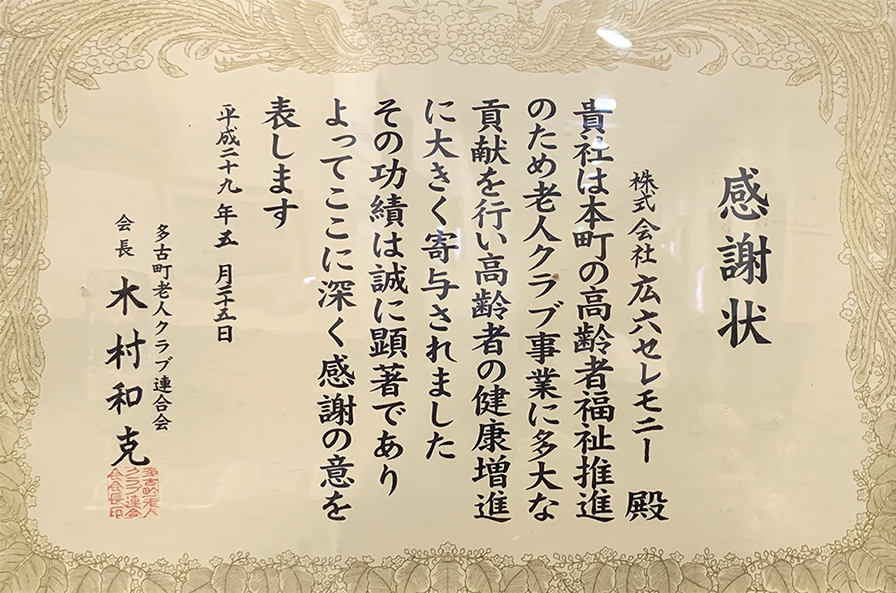 感謝状
株式会社 広六セレモニー 殿
貴社は本町の高齢者福祉推進
のため老人クラブ事業に多大な
貢献を行い高齢者の健康増進
に大きく寄与されました
その功績は誠に顕著であり
よってここに深く感謝の意を
表します
平成二十九年五月二十五日
多古町老人クラブ連合会
会長 木村和克
多古町老人
クラブ連合
会会長印